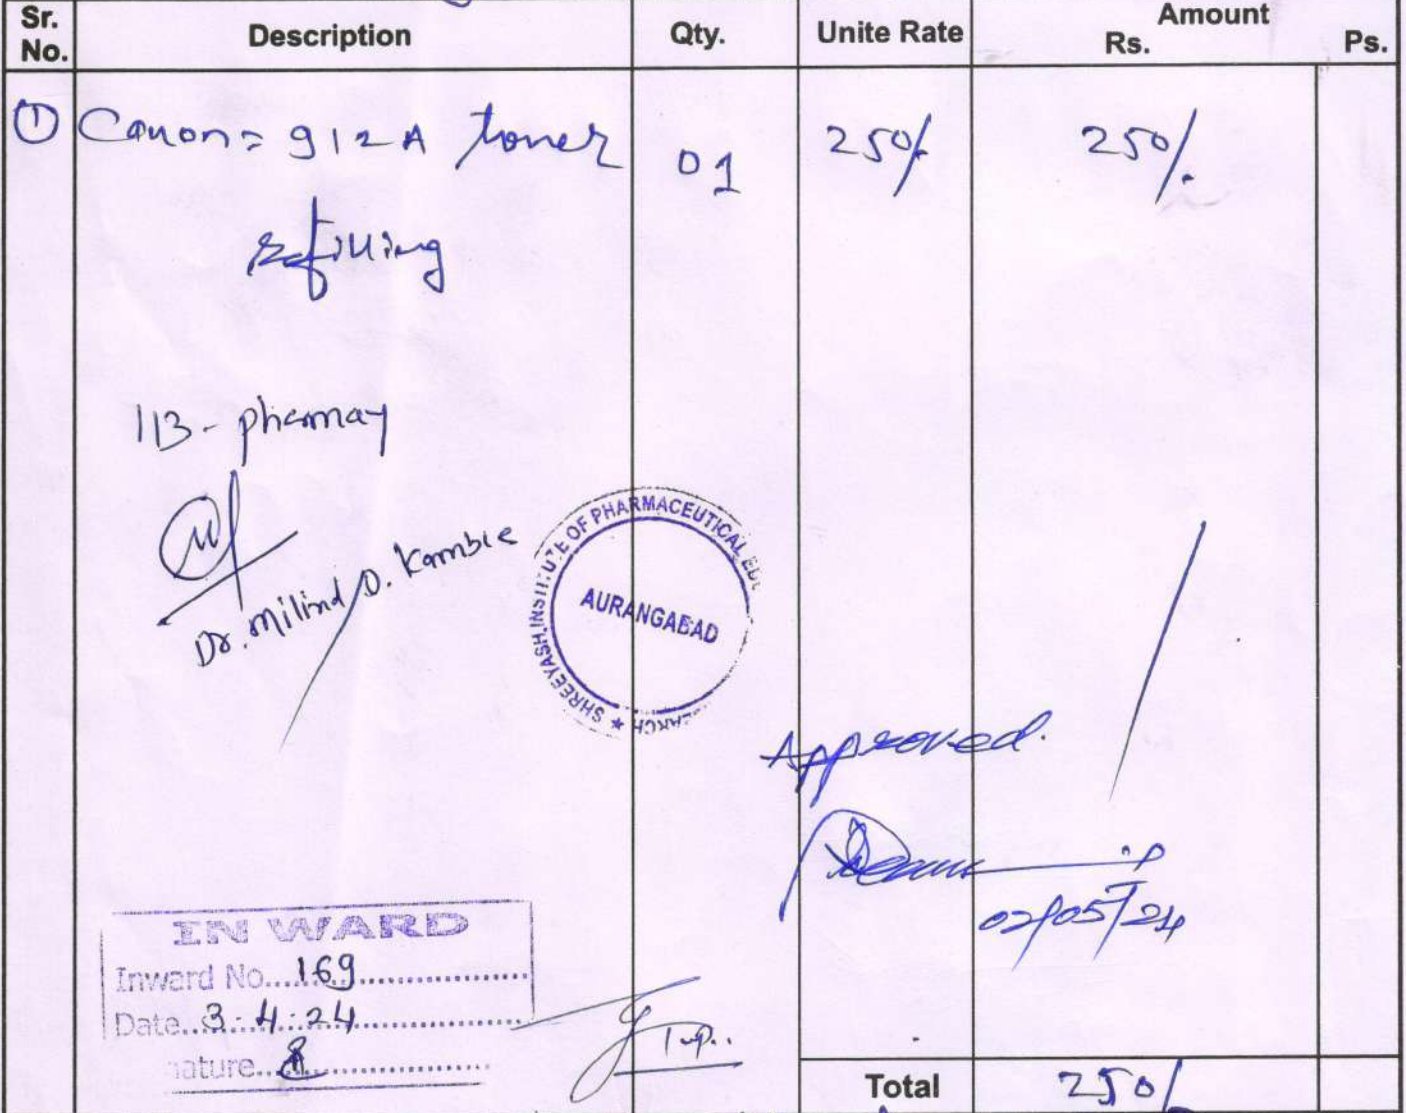 Sr. No. Description Qty. Unite Rate Amount Rs. Ps.
① Canon = 912A toner 01 250/- 250/-
refilling
113- phamay
Dr. Milind D. Kamble
SHREEYASH INSTITUTE OF PHARMACEUTICAL EDU
AURANGABAD
Approved.
02/05/24
IN WARD
Inward No. 169
Date. 3.4.24
nature
Total 250/